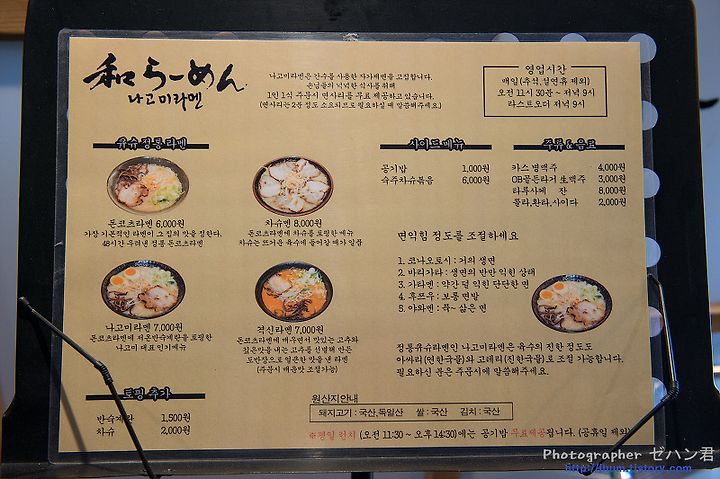 和らーめん
나고미라멘
나고미라멘은 간수를 사용한 자가제면을 고집합니다.
손님들의 넉넉한 식사를 위해
1인 1식 주문시 면사리를 무료 제공하고 있습니다.
(면사리는 2분 정도 소요되므로 필요하실 때 말씀해주세요.)
영업시간
매일 (추석,설연휴 제외)
오전 11시 30분 ~ 저녁 9시
라스트오더 저녁 9시
큐슈 정통 라멘
돈코츠라멘 6,000원
가장 기본적인 라멘이 그 집의 맛을 정한다.
48시간 우려낸 정통 돈코츠라멘
차슈라멘 8,000원
돈코츠라멘에 차슈를 토핑한 메뉴
차슈는 뜨거운 육수에 들어갈 때가 일품
나고미라멘 7,000원
돈코츠라멘에 저온반숙계란을 토핑한
나고미 대표 인기메뉴
격신라멘 7,000원
돈코츠라멘에 매우면서 맛있는 고추와
깊은맛을 내는 고추를 선별해 만든
도반장으로 얼큰한 맛을 낸 라멘
(주문시 매운맛 조절가능)
토핑 추가
반숙계란 1,500원
차슈 2,000원
사이드메뉴
공기밥 1,000원
숙주차슈볶음 6,000원
주류&음료
카스 병맥주 4,000원
OB골든라거 생맥주 3,000원
타루사케 잔 8,000원
콜라,환타,사이다 2,000원
면익힘 정도를 조절하세요
1. 코나오토시 : 거의 생면
2. 바리카타 : 생면의 반만 익힌 상태
3. 카타멘 : 약간 덜 익힌 단단한 면
4. 후쯔우 : 보통 면발
5. 야와멘 : 푹~ 삶은 면
정통큐슈라멘인 나고미라멘은 육수의 진한 정도도
아싸리(연한국물)와 고테리(진한국물)로 조절 가능합니다.
필요하신 분은 주문시에 말씀해주세요.
원산지안내
돼지고기 : 국산,독일산 쌀 : 국산 김치 : 국산
※평일 런치 (오전 11:30 ~ 오후 14:30)에는 공기밥 무료제공됩니다. (공휴일 제외)
Photographer ゼハン君